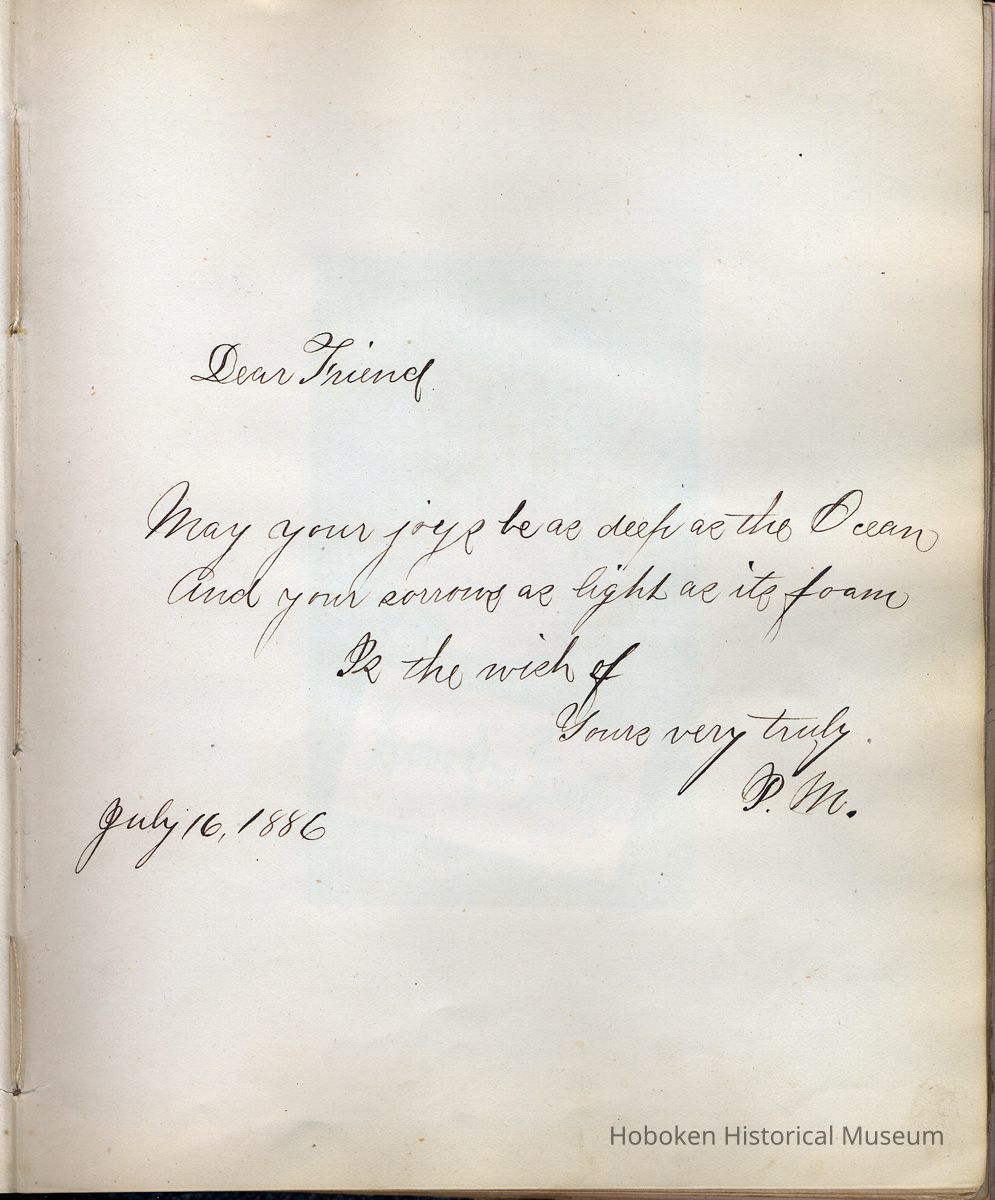 Dear Friend
May your joys be as deep as the Ocean
And your sorrows as light as its foam
Is the wish of
Yours very truly.
P. M.
July 16, 1886
Hoboken Historical Museum